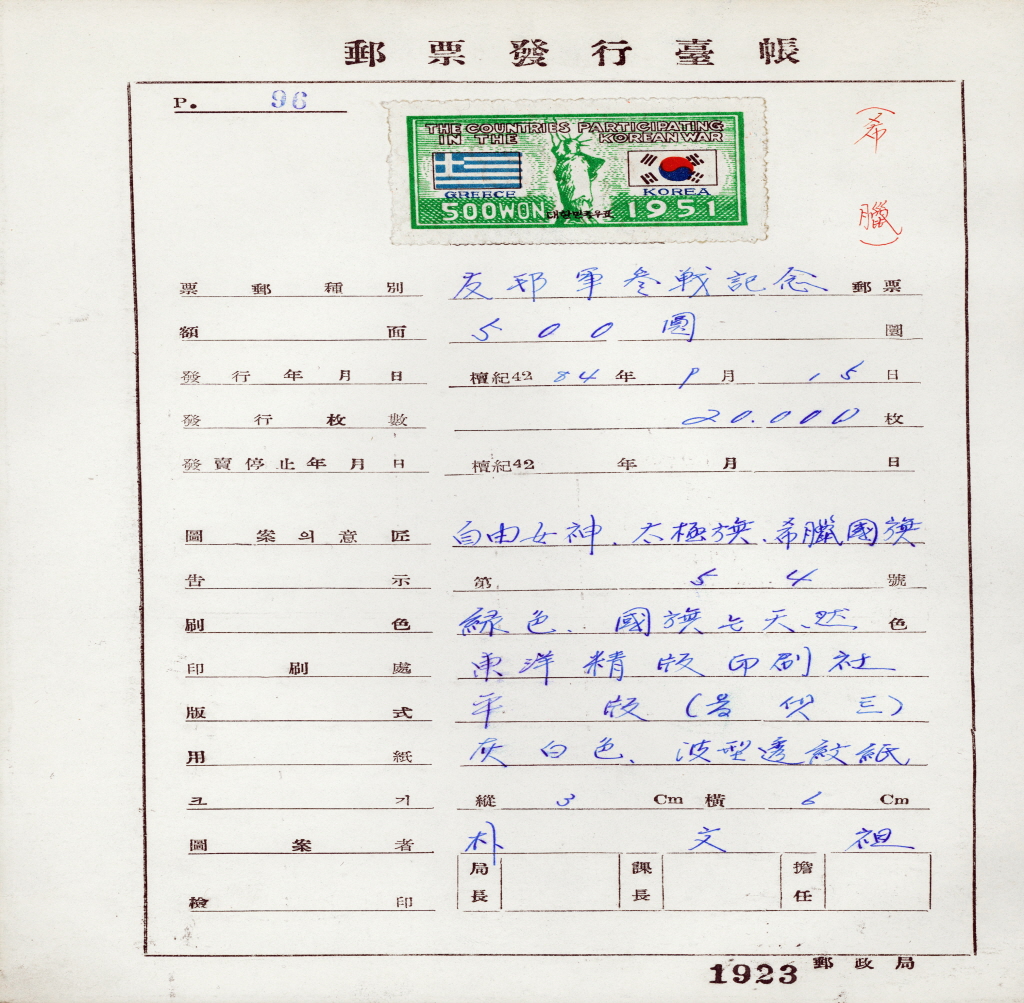 郵票發行臺帳
P. 96
THE COUNTRIES PARTICIPATING
IN THE KOREAN WAR
GREECE
KOREA
500WON 대한민국우표 1951
(希臘)
票郵種別 友邦軍參戰記念 郵票
額面 500圓 圜
發行年月日 檀紀42 84年 9月 15日
發行枚數 20.000 枚
發賣停止年月日 檀紀42 年 月 日
圖案의意匠 自由女神、太極旗、希臘國旗
告示 第 54 號
刷色 綠色、國旗는天然色
印刷處 東洋精版印刷社
版式 平版
用紙 灰白色、波型透紋紙
크기 縱 3 Cm 橫 6 Cm
圖案者 朴文祖
檢印 局長 課長 擔任
1923 郵政局